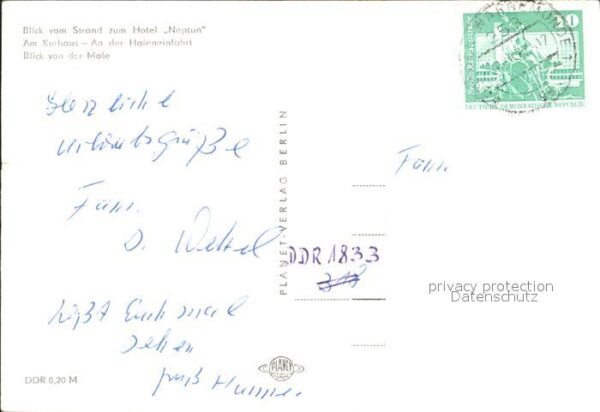 Blick vom Strand zum Hotel „Neptun"
Am Kurhaus — An der Hafeneinfahrt
Blick von der Mole
Herzliche
Urlaubsgrüße
Fam.
D.
laßt Euch mal
sehen
Gruß
DDR 0,20 M
PLANET-VERLAG BERLIN
PLANET
DDR 1833
318
Fam.
10
DEUTSCHE DEMOKRATISCHE REPUBLIK
WARNEMÜNDE 1
privacy protection
Datenschutz